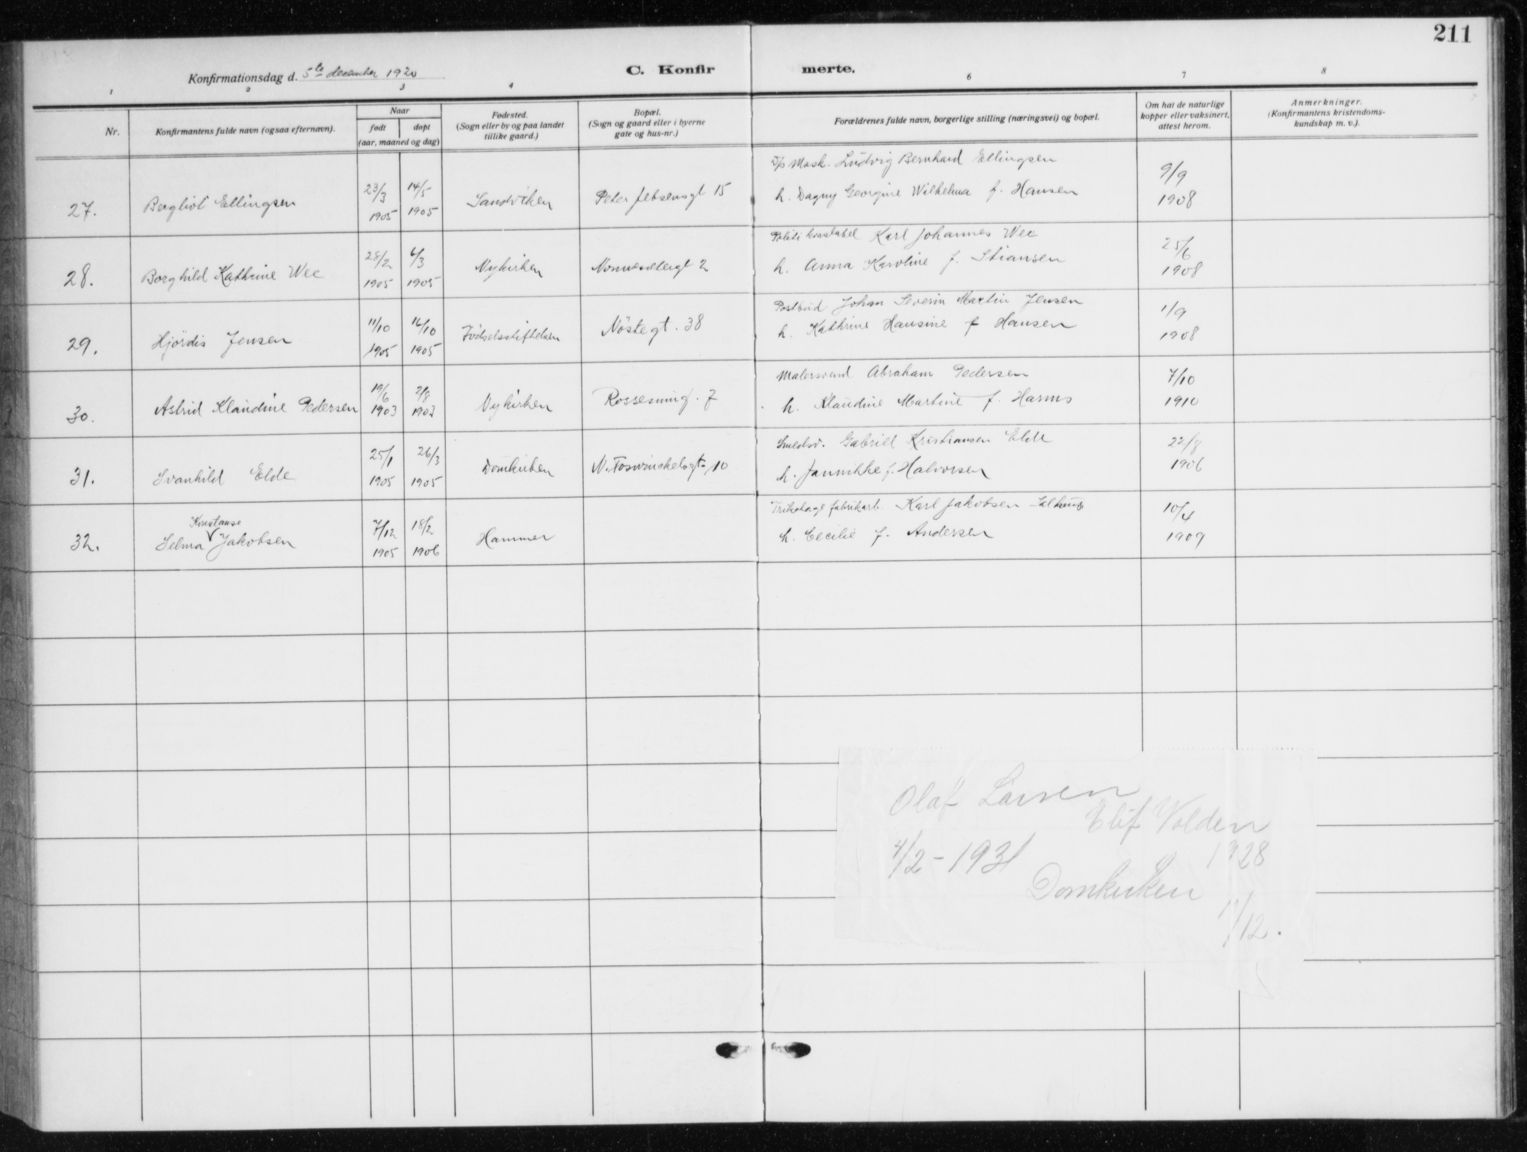 211
Konfirmationsdag d. 5te december 1920
C. Konfirmerte.
1 2 3 4 6 7 8
Nr.
Konfirmantens fulde navn (ogsaa efternavn).
Naar
født
døpt
(aar, maaned og dag)
Fødested.
(Sogn eller by og paa landet
tillike gaard.)
Bopæl.
(Sogn og gaard eller i byerne
gate og hus-nr.)
Forældrenes fulde navn, borgerlige stilling (næringsvei) og bopæl.
Om hat de naturlige
kopper eller vaksinert,
attest herom.
Anmerkninger.
(Konfirmantens kristendoms-
kundskap m. v.).
27. Bergliot Ellingsen 23/3 1905 14/5 1905 Sandviken Peter Jebsensgt 15
Mask. Ludvig Bernhard Ellingsen
h. Dagny Georgine Wilhelma f. Hansen
9/9 1908
28. Borghild Kathrine Wee 28/2 1905 6/3 1905 Nykirken 2
Politi konstabel Karl Johannes Wee
h. Anna Karoline f. Stiansen
25/6 1908
29. Hjørdis Jensen 11/10 1905 16/10 1905 Fødselsstiftelsen Nöstegt. 38
Postbud Johan Severin Martin Jensen
h. Kathrine Hansine f Hansen
1/9 1908
30. Astrid Klaudine Pedersen 19/6 1903 2/8 1903 Nykirken Rossesmug. 7
Malersvend Abraham Pedersen
h. Klaudine Martine f. Harms
7/10 1910
31. Svanhild Elde 25/1 1905 26/3 1905 Domkirken N. Foswinckelsgt 10
Gabriel Kristiansen Elde
h. Jannikke f. Halvorsen
22/8 1906
32. Selma Konstanse Jakobsen 7/12 1905 18/2 1906 Hammer
Trikotage fabrikarb. Karl Jakobsen
h. Cecilie f. Andersen
10/4 1909
Olaf Larsen
Elif Volden
4/2 - 1931
1928
Domkirken
11/12.